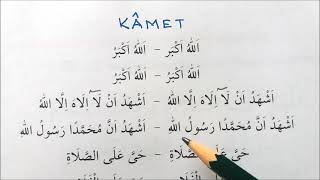 KÂMET
اَللّٰهُ اَكْبَرُ – اَللّٰهُ اَكْبَرُ
اَللّٰهُ اَكْبَرُ – اَللّٰهُ اَكْبَرُ
اَشْهَدُ اَنْ لَٓا اِلٰهَ اِلَّا اللّٰهُ – اَشْهَدُ اَنْ لَٓا اِلٰهَ اِلَّا اللّٰهُ
اَشْهَدُ اَنَّ مُحَمَّدًا رَسُولُ اللّٰهِ – اَشْهَدُ اَنَّ مُحَمَّدًا رَسُولُ اللّٰهِ
حَىَّ عَلَى الصَّلَاةِ – حَىَّ عَلَى الصَّلَاةِ